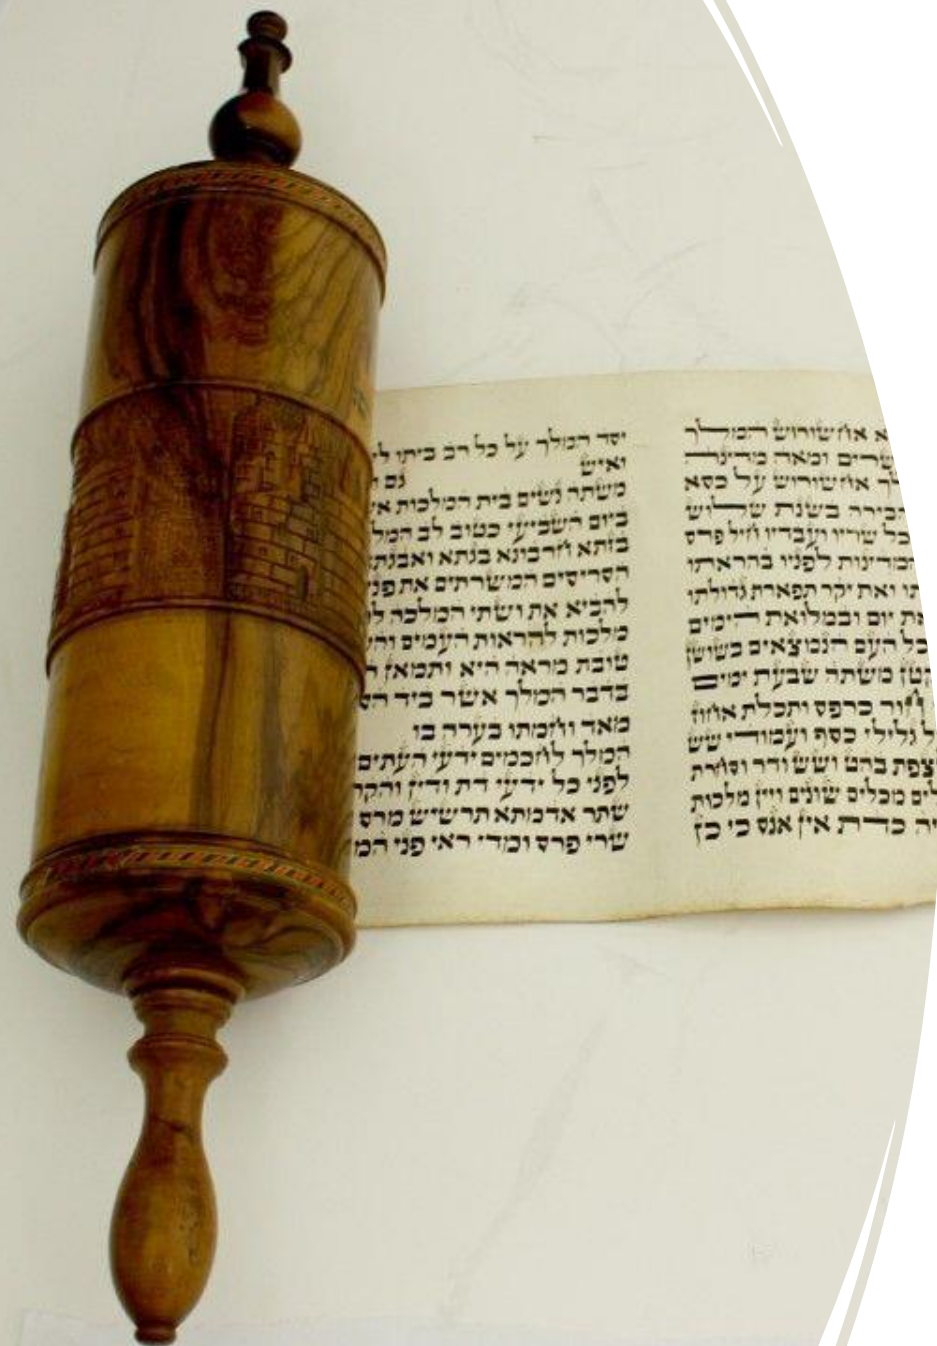 אחשורוש המלך
שרים ומאה מדינה
אחשורוש על כסא
בירה בשנת שלוש
כל שריו ועבדיו חיל פרס
המדינות לפניו בהראתו
תו ואת יקר תפארת גדולתו
את יום ובמלואת הימים
כל העם הנמצאים בשושן
קטן משתה שבעת ימים
חור כרפס ותכלת אחוז
ל גלילי כסף ועמודי שש
צפת בהט ושש ודר וסחרת
לים מכלים שונים ויין מלכות
יה כדת אין אנס כי כן
יסד המלך על כל רב ביתו
ואיש גם
משתה נשים בית המלכות
ביום השביעי כטוב לב המל
בזתא חרבונא בגתא ואבגתא
הסריסים המשרתים את פני
להביא את ושתי המלכה
מלכות להראות העמים
טובת מראה היא ותמאן
בדבר המלך אשר ביד
מאד וחמתו בערה בו
המלך לחכמים ידעי העתים
לפני כל ידעי דת ודין
שתר אדמתא תרשיש מרס
שרי פרס ומדי ראי פני המ